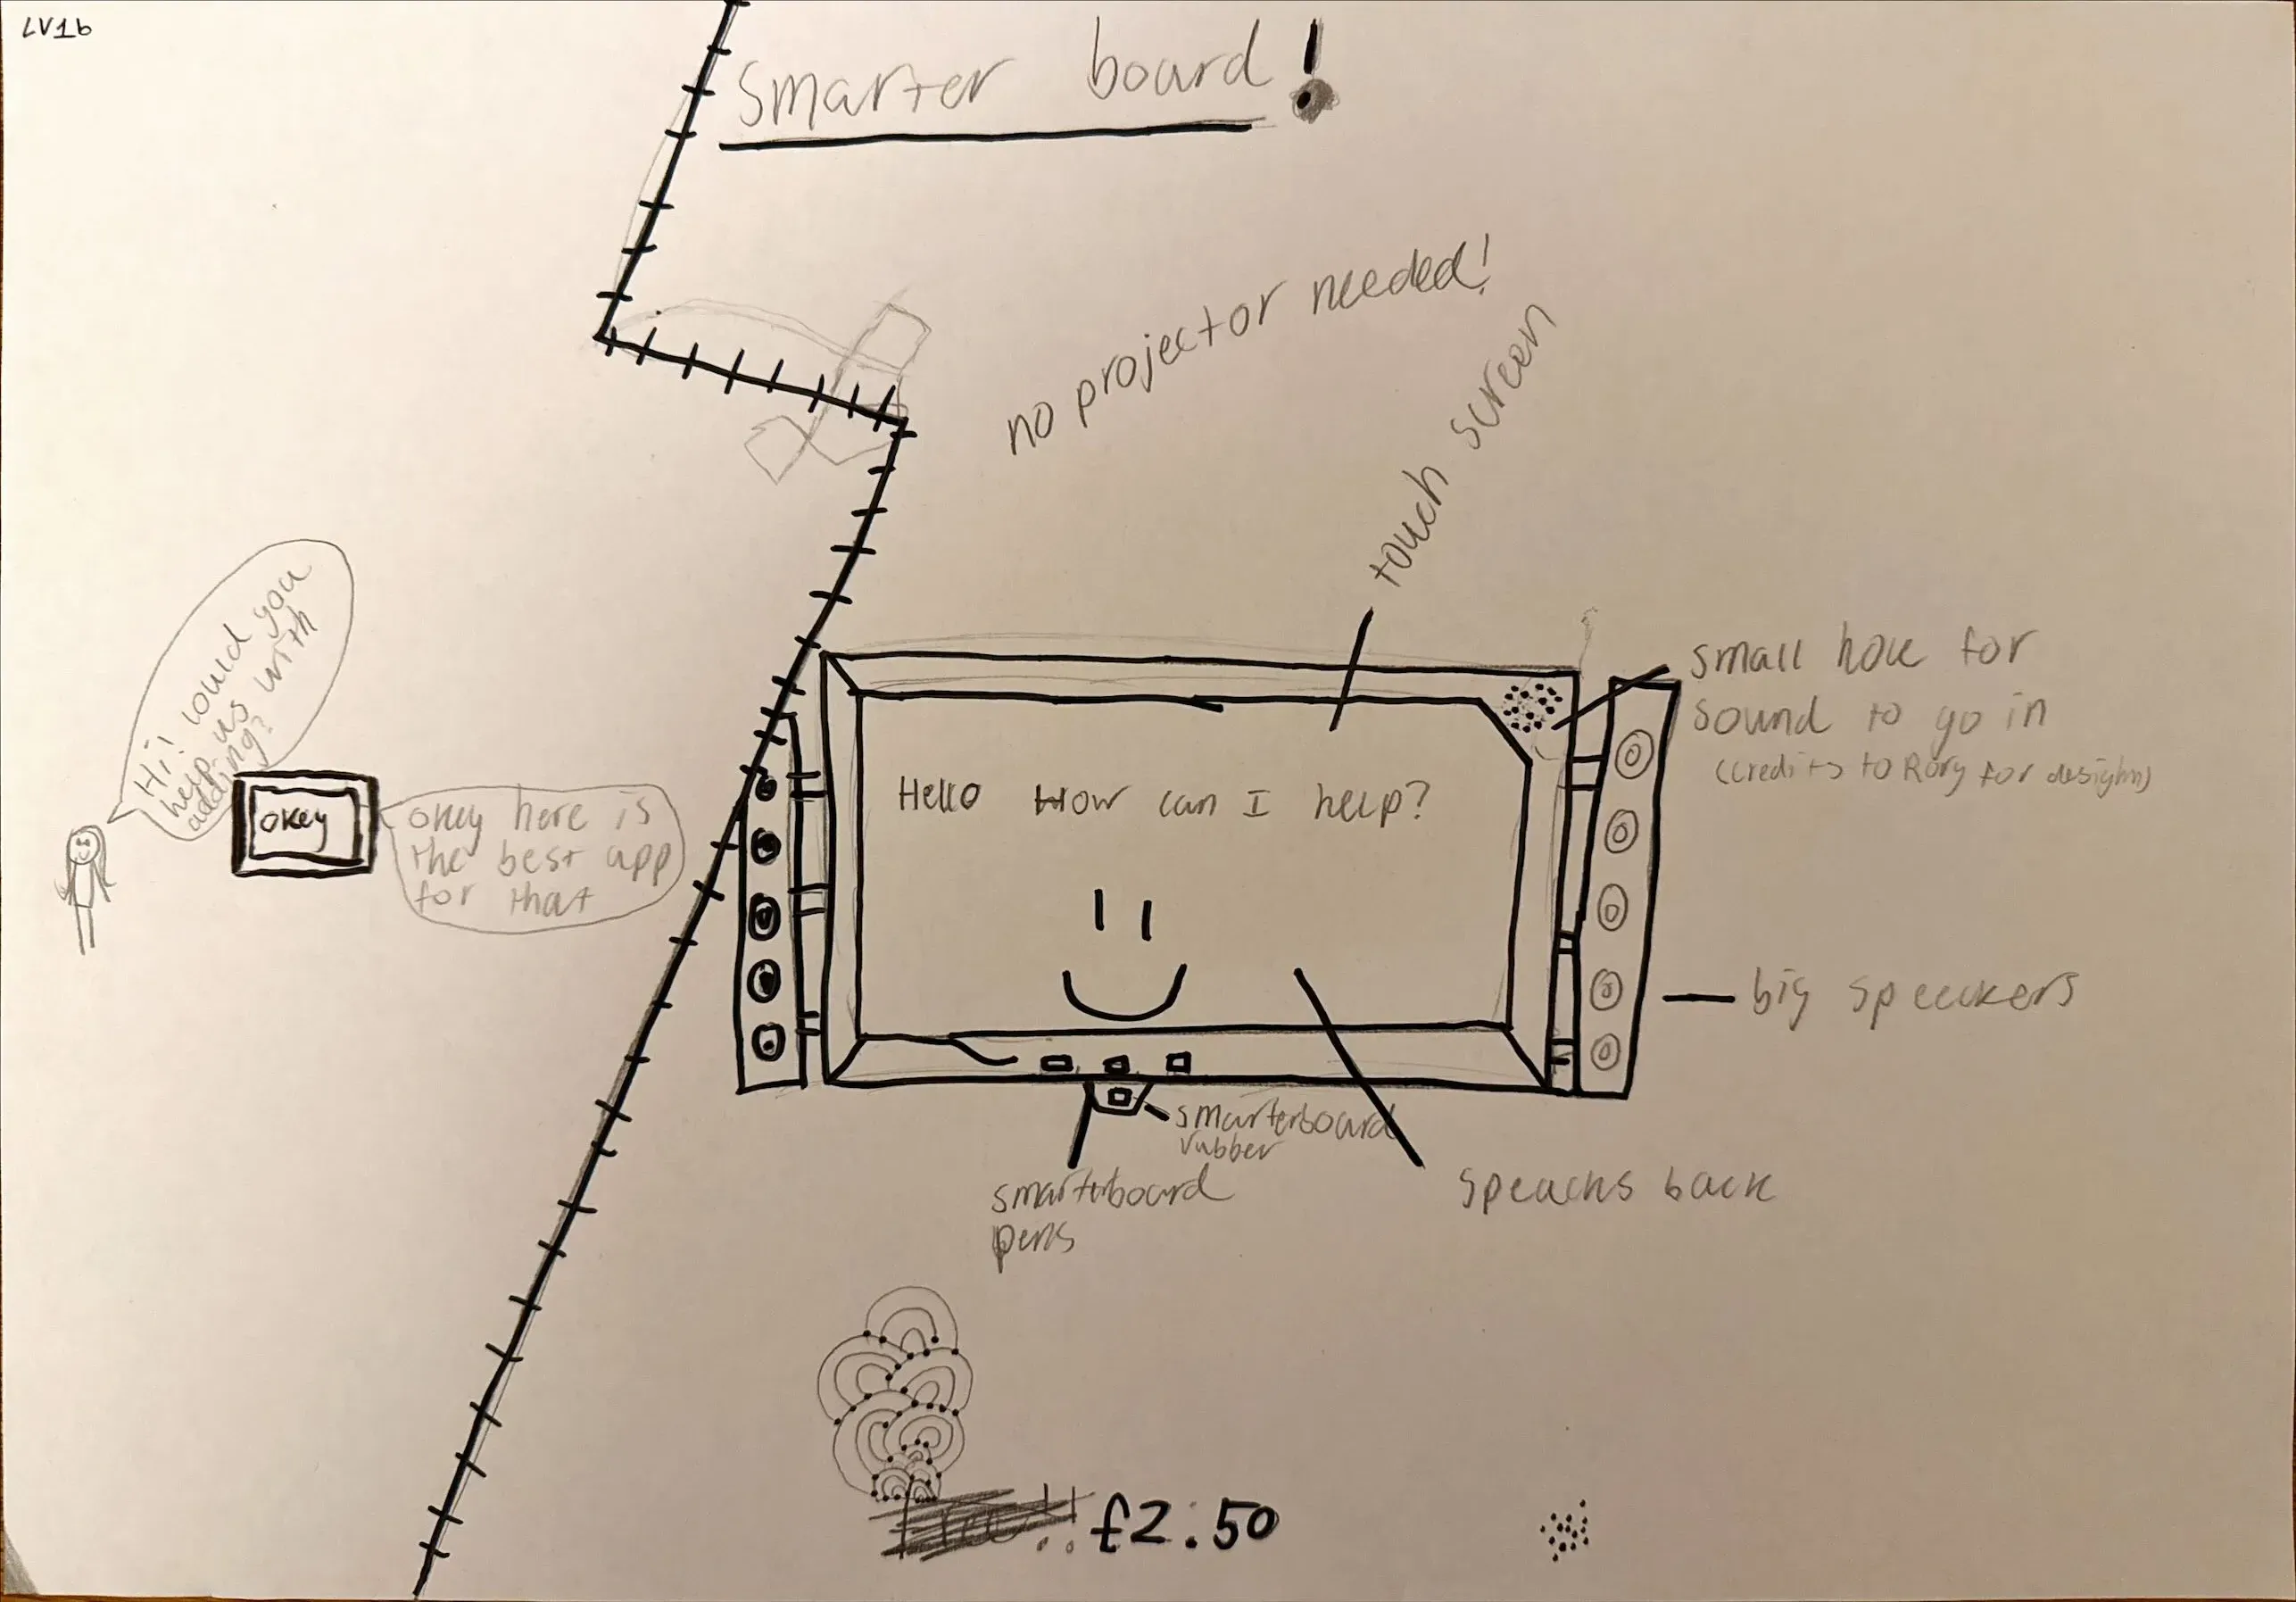 LV1b
smarter board!
no projector needed!
touch screen
Hi! could you
help us with
adding?
okey
okey here is
the best app
for that
small hole for
sound to go in
(credits to Rory for desighn)
Hello How can I help?
big speeckers
smarterboard
rubber
smarterboard
pens
speacks back
£2:50